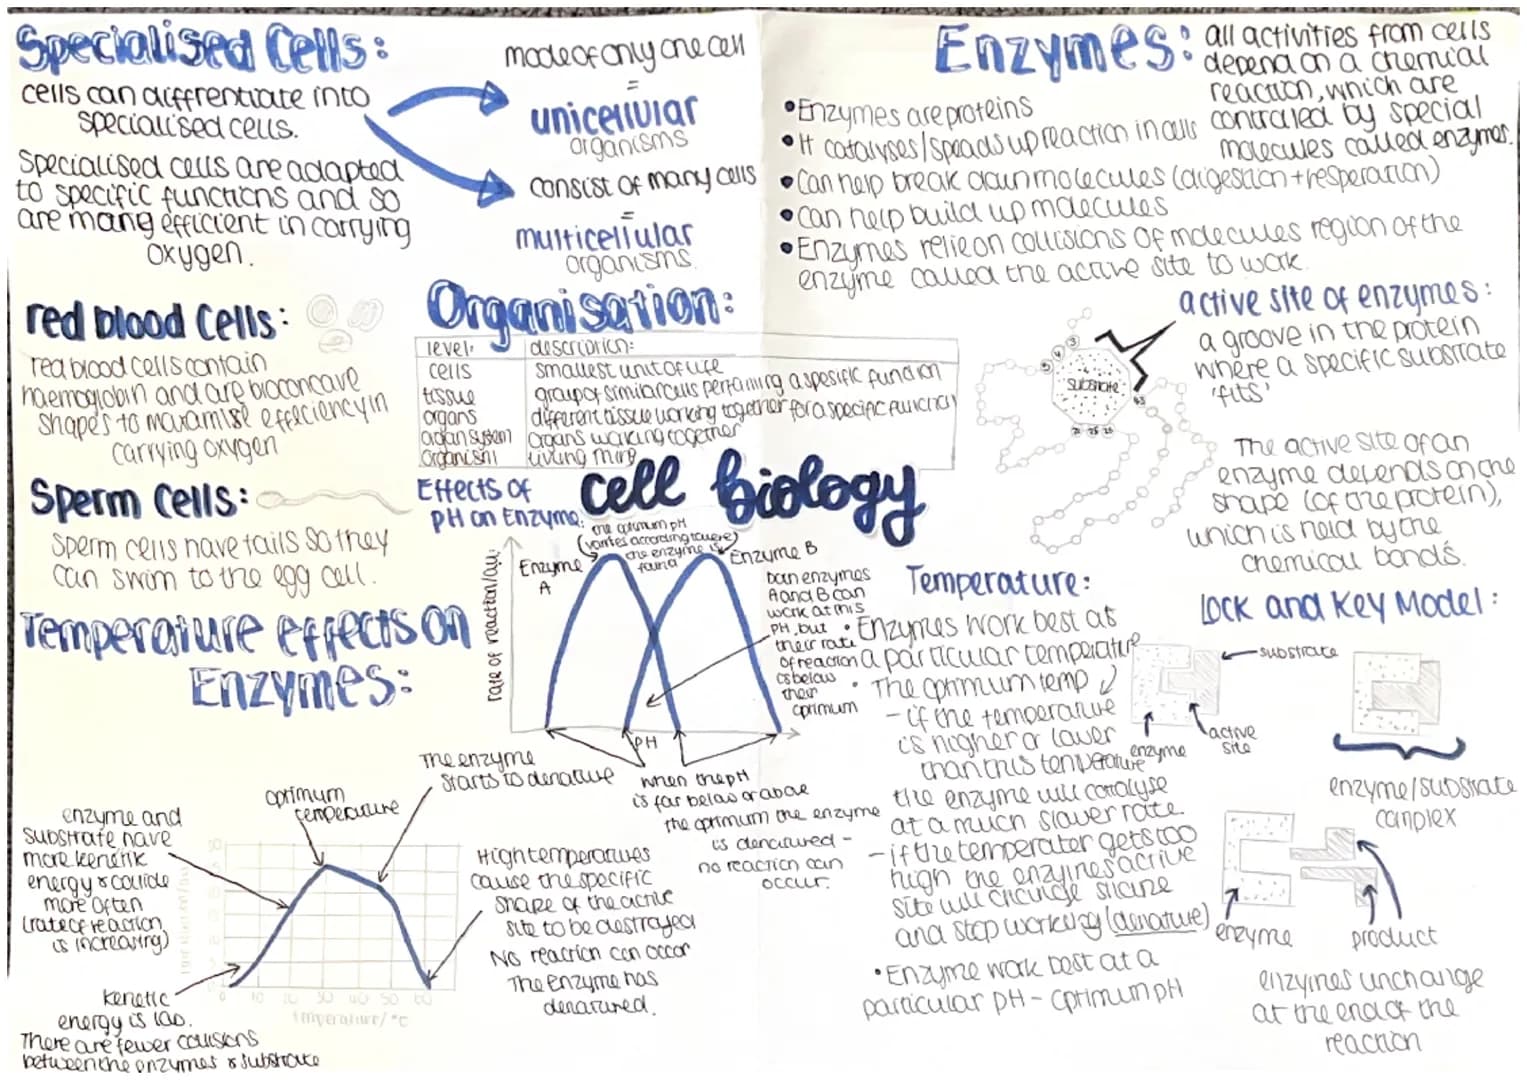 Specialised Cells:
cells can diffrentiate into
specialised cells.
Specialised cells are adapted
to specific functions and so
are mang efficient in carrying
oxygen.
made of only one cell
=
unicellular
organisms
consist of many cells
=
multicellular
organisms.
red blood cells:
red blood cells contain
haemoglobin and are bioconcave
shapes to maximise efficiency in
carrying oxygen
Sperm Cells:
sperm cells have tails so they
can swim to the egg cell.
Organisation:
level: description:
cells smallest unit of life
tissue group of similar cells pertaining a spesific function
organs different tissue working together for a specific function
organ system organs working together
organism living thing
cell biology
Enzymes:
all activities from cells
depend on a chemical
reaction, which are
controled by special
molecules called enzymes.
• Enzymes are proteins
• It catalyses/speads up reaction in cells
• Can help break down molecules (digestion + resperation)
• can help build up molecules
• Enzymes relie on collisions of molecules region of the
enzyme called the active site to work.
active site of enzymes:
a groove in the protein
where a specific substrate
'fits'
substrate
The active site of an
enzyme depends on the
shape (of the protein),
which is held by the
chemical bonds.
Effects of
pH on Enzyme:
the optimum pH
(varites according to where)
the enzyme is
found
Enzyme
A
Enzyme B
rate of reaction/au
pH
both enzymes
A and B can
work at this
pH, but
their rate
of reaction
is below
their
optimum
when the pH
is far below or above
the optimum the enzyme
is denatured -
no reaction can
occur.
Temperature effects on
Enzymes:
The enzyme
starts to denature
optimum
temperature
enzyme and
substrate have
more kenetik
energy & collide
more often
(rate of reaction
is increasing)
kenetic
energy is low.
There are fewer collisions
between the enzymes & substrate
10 20 30 40 50 60
temperature/°C
High temperatures
cause the specific
shape of the active
site to be destroyed
No reaction can occur
The enzyme has
denatured.
Temperature:
• Enzymes work best at
a particular temperature
• The optimum temp
- if the temperature
is higher or lower
than this temperature
the enzyme will catalyse
at a much slower rate.
- if the temperater gets too
high the enzymes active
site will
and stop working (denature)
• Enzyme work best at a
particular pH - optimum pH
Lock and Key Model:
substrate
enzyme
active
site
enzyme/substrate
complex
enzyme
product
enzymes unchange
at the end of the
reaction